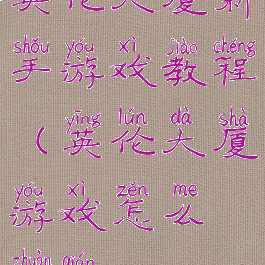 英伦大厦新
shǒu yóu xì jiào chéng
手游戏教程
yīng lún dà shà
（英伦大厦
yóu xì zěn me
游戏怎么